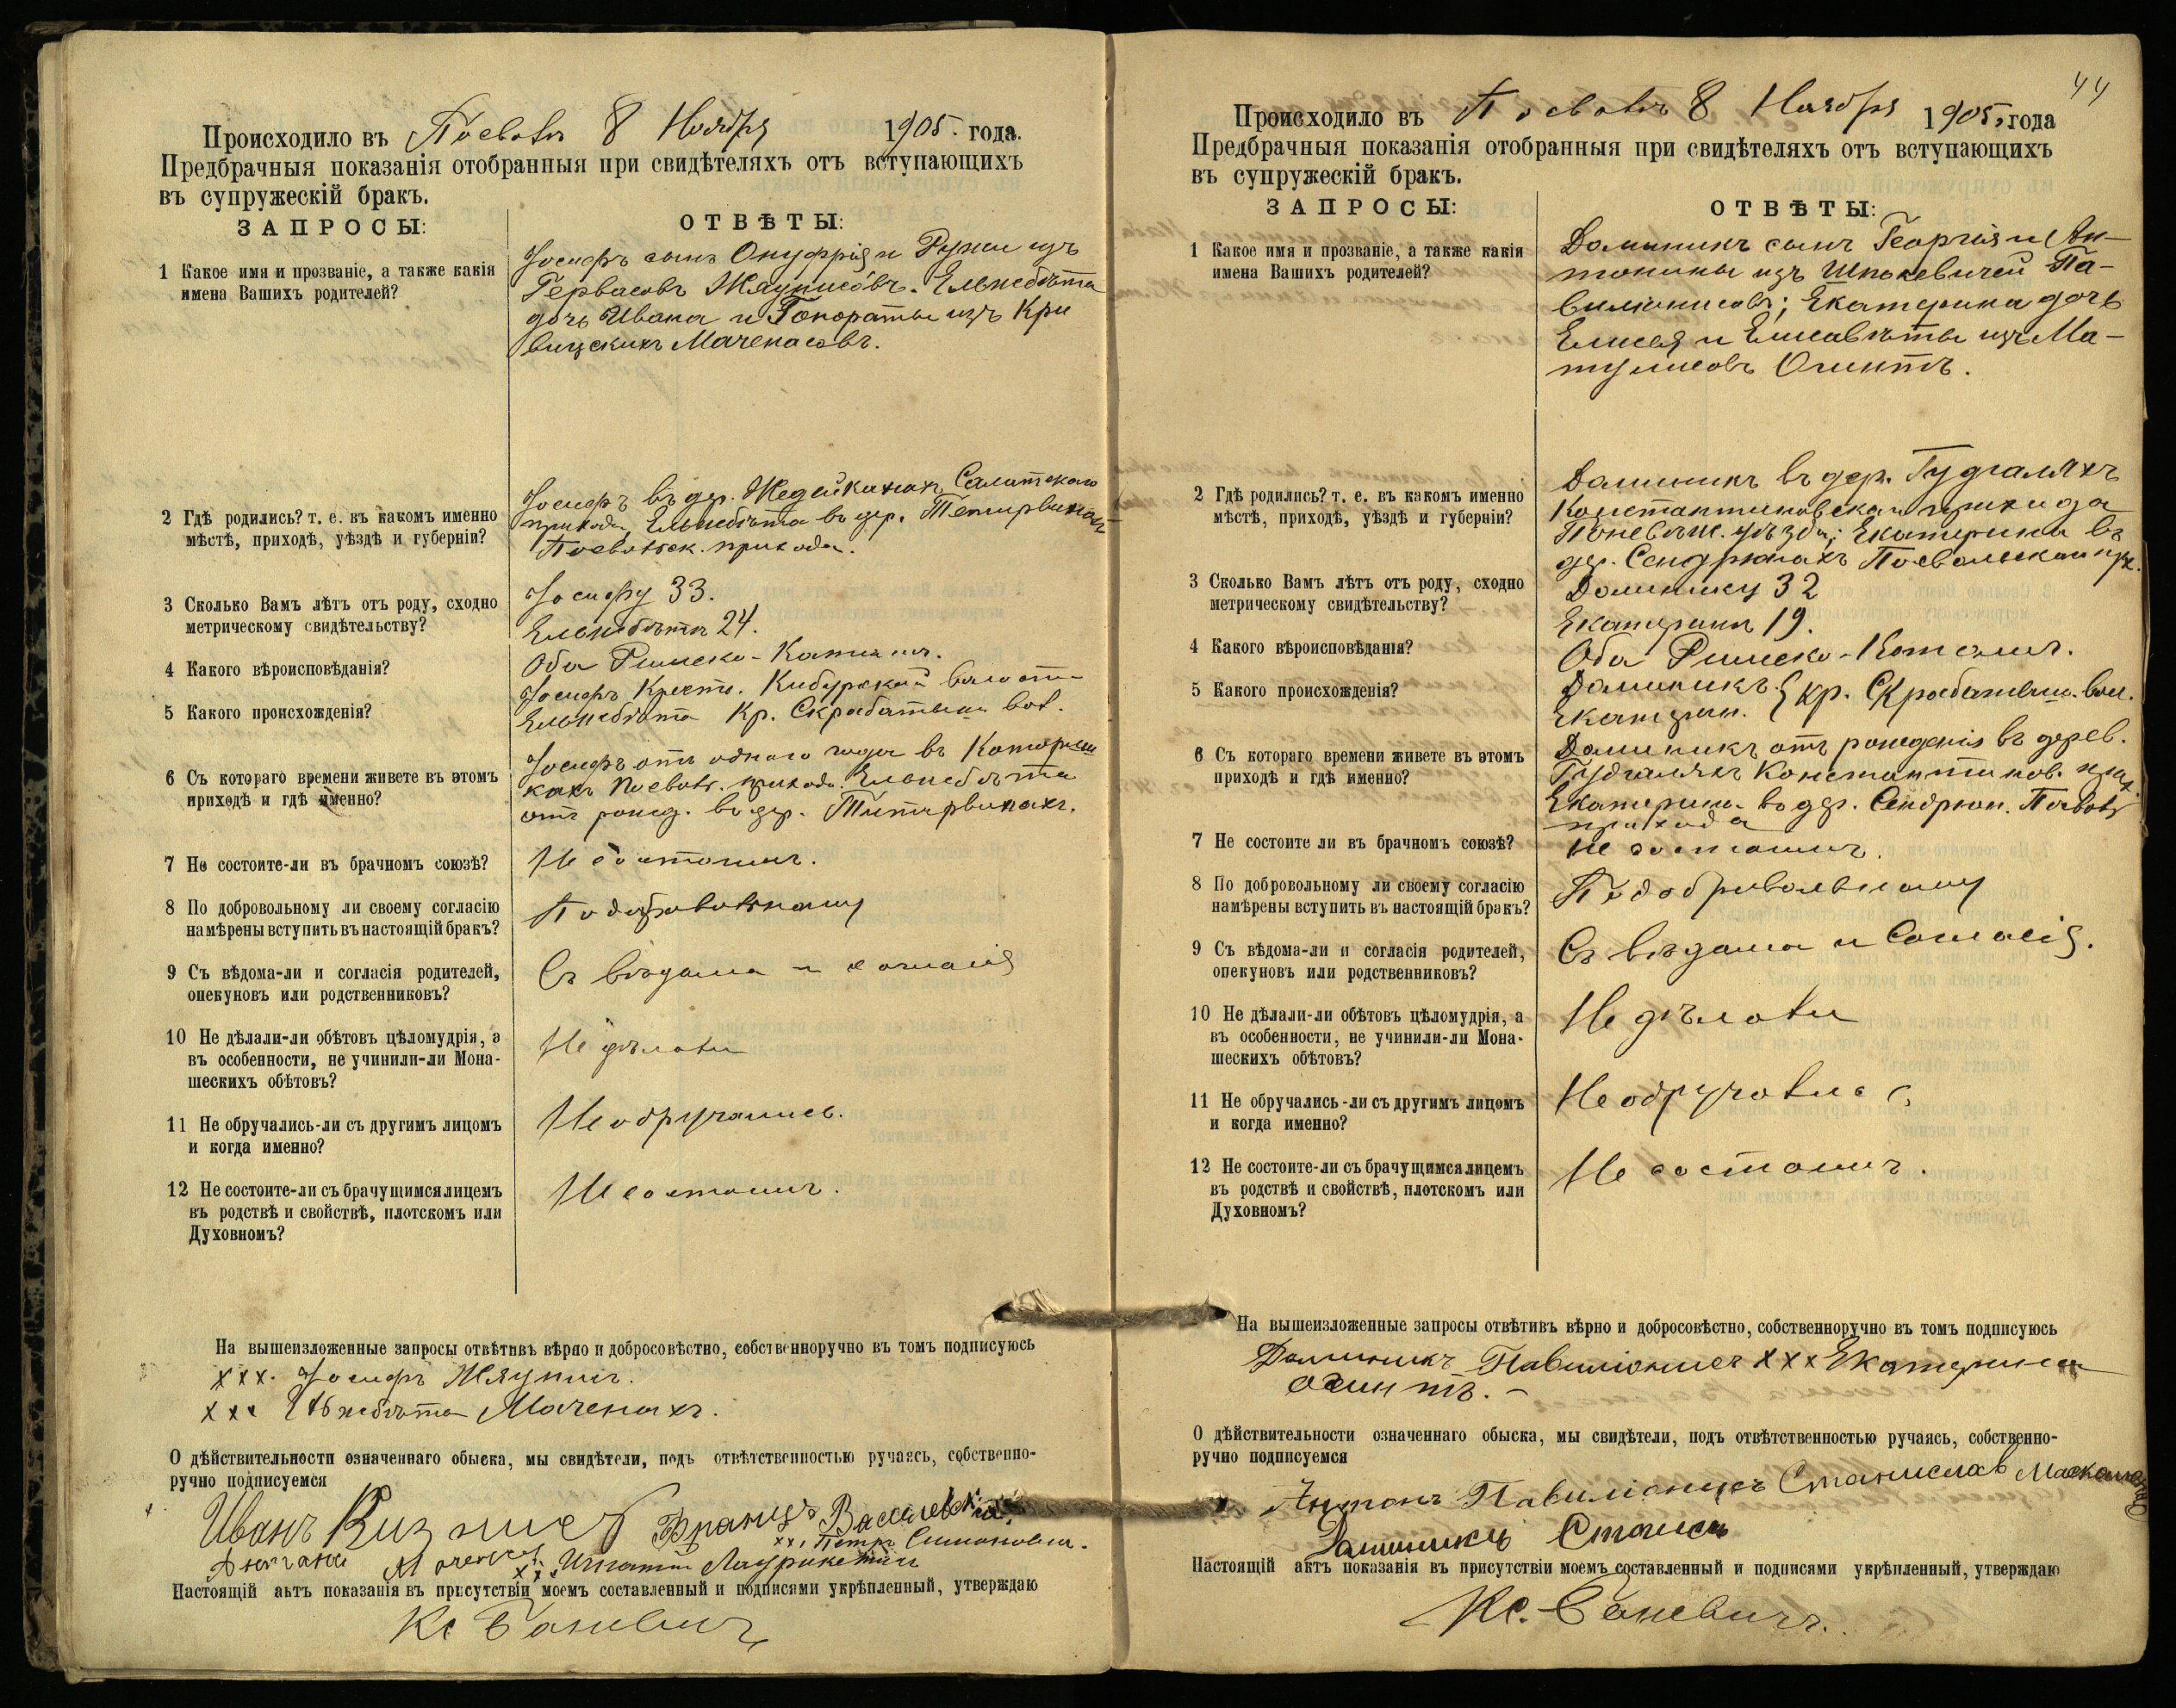 Происходило въ Посволѣ 8 Ноября 1905. года.
Предбрачныя показанія отобранныя при свидѣтеляхъ отъ вступающихъ
въ супружескій бракъ.
ЗАПРОСЫ:
ОТВѢТЫ:
1 Какое имя и прозваніе, а также какія
имена Вашихъ родителей?
Іосифъ сынъ Онуфрія и Розыи изъ
Гервасовъ Жяунисовъ. Ельжбѣта
дочь Ивана и Гонораты изъ Кри
вицскихъ Маченасовъ.
2 Гдѣ родились? т. е. въ какомъ именно
мѣстѣ, приходѣ, уѣздѣ и губерніи?
Іосифъ въ дер. Жедейканахъ, Салатскаго
прихода, Ельжбѣта въ дер.
Посвольск. прихода.
3 Сколько Вамъ лѣтъ отъ роду, сходно
метрическому свидѣтельству?
Іосифу 33.
Ельжбѣтѣ 24.
4 Какого вѣроисповѣданія?
Оба Римско-Католич.
5 Какого происхожденія?
Іосифъ Крест. Кибурской волости
Ельжбѣта Кр. Скрабатишк. вол.
6 Съ котораго времени живете въ этомъ
приходѣ и гдѣ именно?
Іосифъ отъ одного года въ
Посвол. прихода. Ельжбѣта
отъ рожд. въ дер.
7 Не состоите-ли въ брачномъ союзѣ?
Не состоимъ.
8 По добровольному ли своему согласію
намѣрены вступить въ настоящій бракъ?
По добровольному
9 Съ вѣдома-ли и согласія родителей,
опекуновъ или родственниковъ?
Съ вѣдома и согласія
10 Не дѣлали-ли обѣтовъ цѣломудрія, а
въ особенности, не учинили-ли Мона-
шескихъ обѣтовъ?
Не дѣлали
11 Не обручались-ли съ другимъ лицомъ
и когда именно?
Не обручались.
12 Не состоите-ли съ брачущимся лицемъ
въ родствѣ и свойствѣ, плотскомъ или
Духовномъ?
Не состоимъ.
На вышеизложенные запросы отвѣтивъ вѣрно и добросовѣстно, собственноручно въ томъ подписуюсь
ххх. Іосифъ Жяунисъ.
ххх Ельжбѣта Маченахъ.
О дѣйствительности означеннаго обыска, мы свидѣтели, подъ отвѣтственностью ручаясь, собственно-
ручно подписуемся
Иванъ Францъ
Петръ Симоновичъ.
Игнатій
Настоящій актъ показанія въ присутствіи моемъ составленный и подписями укрѣпленный, утверждаю
Кс Баневичъ
44
Происходило въ Посволѣ 8 Ноября 1905, года
Предбрачныя показанія отобранныя при свидѣтеляхъ отъ вступающихъ
въ супружескій бракъ.
ЗАПРОСЫ:
ОТВѢТЫ:
1 Какое имя и прозваніе, а также какія
имена Вашихъ родителей?
Доминикъ сынъ Георгія и Ан-
тонины изъ Шпокевичей Па-
вилюнисовъ; Екатерина дочь
Елисея и Елисаветы изъ Ма-
тулисовъ Очинтъ.
2 Гдѣ родились? т. е. въ какомъ именно
мѣстѣ, приходѣ, уѣздѣ и губерніи?
Доминикъ въ дер. Гудгаляхъ
Константиновскаго прихода
Поневѣж. уѣзда; Екатерина въ
дер. Сендрюнахъ Посвольскаго пр.
3 Сколько Вамъ лѣтъ отъ роду, сходно
метрическому свидѣтельству?
Доминику 32
Екатеринѣ 19.
4 Какого вѣроисповѣданія?
Оба Римско-Католич.
5 Какого происхожденія?
Доминикъ { кр. Скрабатишк. вол.
Екатерин.
6 Съ котораго времени живете въ этомъ
приходѣ и гдѣ именно?
Доминикъ отъ рожденія въ дерев.
Гудгаляхъ Константинов. прих.
Екатерина въ дер. Сендрюн. Посвол.
прихода
7 Не состоите ли въ брачномъ союзѣ?
Не состоимъ.
8 По добровольному ли своему согласію
намѣрены вступить въ настоящій бракъ?
По добровольному
9 Съ вѣдома-ли и согласія родителей,
опекуновъ или родственниковъ?
Съ вѣдома и согласія.
10 Не дѣлали-ли обѣтовъ цѣломудрія, а
въ особенности, не учинили-ли Мона-
шескихъ обѣтовъ?
Не дѣлали
11 Не обручались-ли съ другимъ лицомъ
и когда именно?
Не обручались
12 Не состоите-ли съ брачущимся лицемъ
въ родствѣ и свойствѣ, плотскомъ или
Духовномъ?
Не состоимъ.
На вышеизложенные запросы отвѣтивъ вѣрно и добросовѣстно, собственноручно въ томъ подписуюсь
Доминикъ Павиліонисъ ххх Екатерина
Очинтъ.
О дѣйствительности означеннаго обыска, мы свидѣтели, подъ отвѣтственностью ручаясь, собственно-
ручно подписуемся
Антонъ Павиліонисъ Станиславъ
Доминикъ
Настоящій актъ показанія въ присутствіи моемъ составленный и подписями укрѣпленный, утверждаю
Кс. Баневичъ.